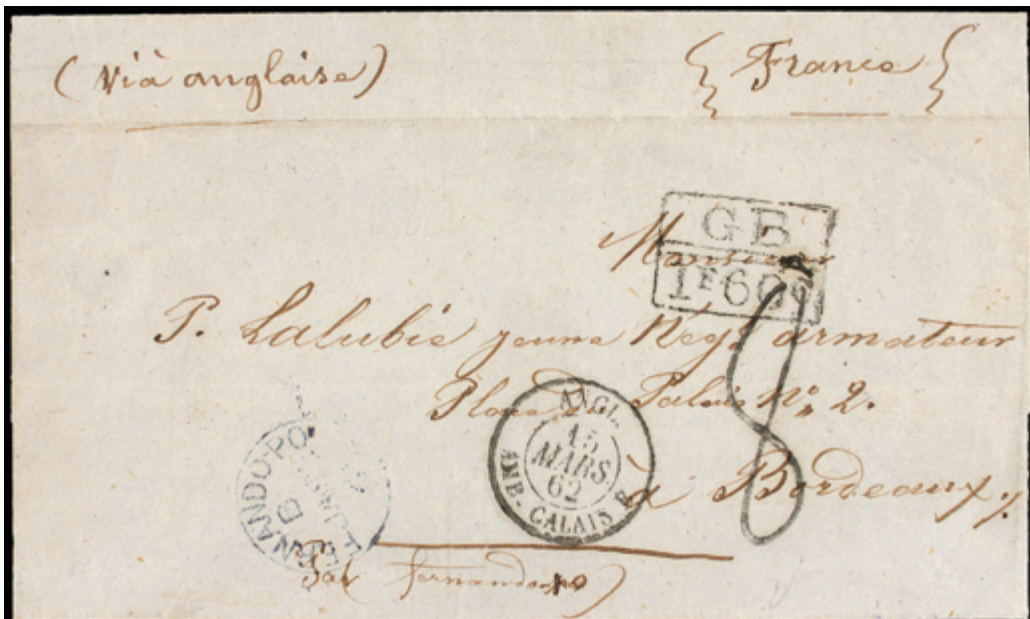 (Vià anglaise)
{ France }
GB
1F60c
Monsieur
P. Lalubie jeune Négt armateur
Place du Palais No, 2.
à Bordeaux
8
ANGL.
15
MARS
62
AMB. CALAIS
NANDO-PO
B
Par fernando-po)